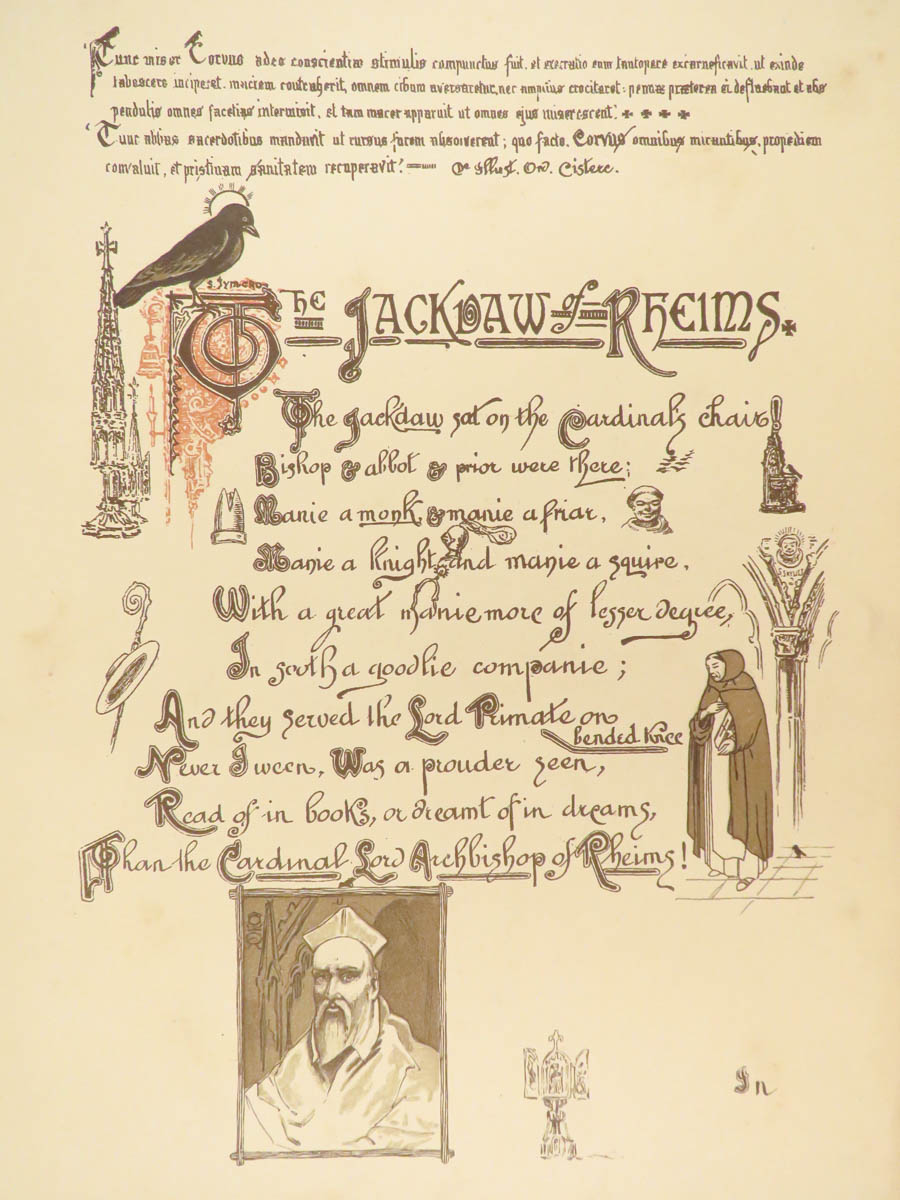 "Tunc miser Corvus adeo conscientiæ stimulis compunctus fuit, et execratio eum tantopere excarneficavit, ut exinde
tabescere inciperet, maciem contraherit, omnem cibum aversaretur, nec ampius crocitaret: pennæ præterea ei defluebant et alis
pendulis omnes facetias intermisit, et tam macer apparuit ut omnes ejus miserescent.
"Tunc abbas sacerdotibus mandavit ut rursus furem absolverent; quo facto, Corvus omnibus mirantibus, propediem
convaluit, et pristinam sanitatem recuperavit." — De Illust. Ord. Cisterc.
The Jackdaw of Rheims.
The Jackdaw sat on the Cardinal's chair!
Bishop & abbot & prior were there;
Manie a monk, & manie a friar,
Manie a knight and manie a squire,
With a great manie more of lesser degree,
In sooth a goodlie companie;
And they served the Lord Primate on
bended knee
Never I ween, Was a prouder seen,
Read of in books, or dreamt of in dreams,
Than the Cardinal Lord Archbishop of Rheims!
In